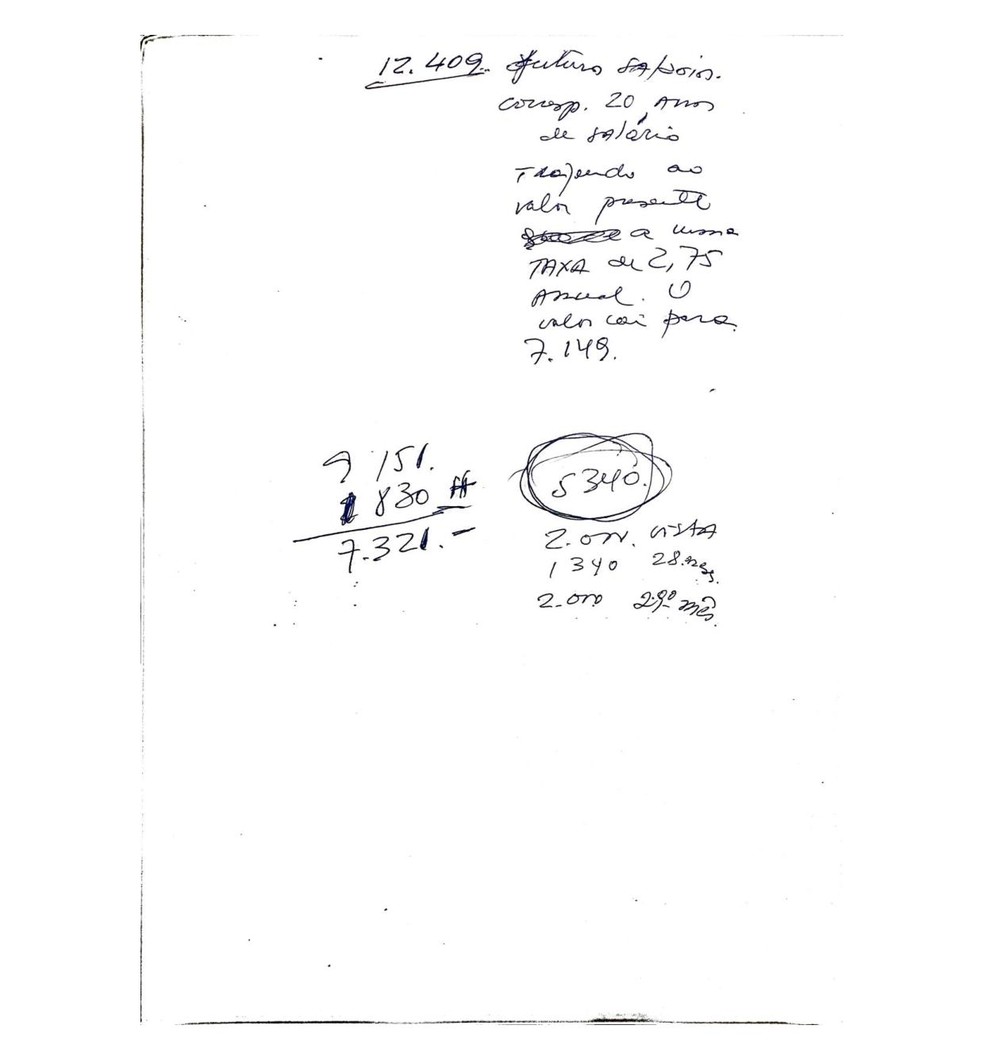 12.409. futuro salários.
corresp. 20 Anos
de salário
Trazendo ao
valor presente
a mesma
TAXA de 2,75
Anual. O
valor cai para
7.149.
9 151.
1 830 H
7.321.-
5 340.
2.000. VISTA
1 340 28.
2.000 29º mês